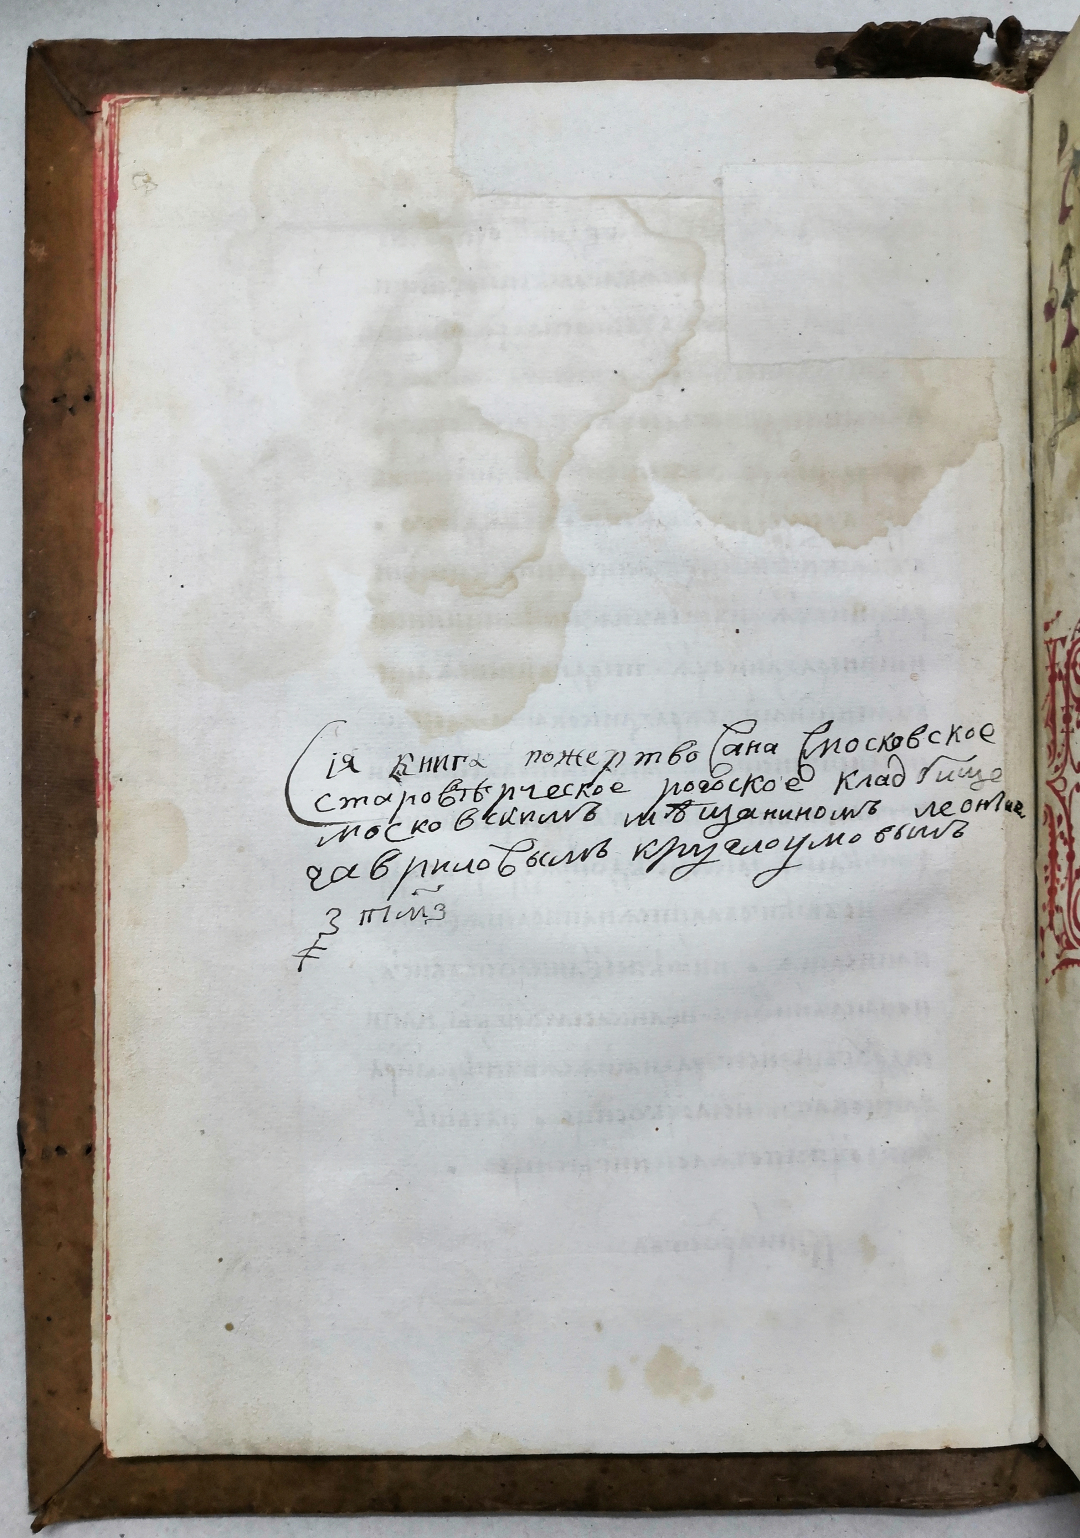 Сія книга пожертвована вмосковское
старовѣрческое рогоское кладбище
московскимъ мѣщаниномъ леонтие
гавриловымъ круглоумовымъ
҂зтмз